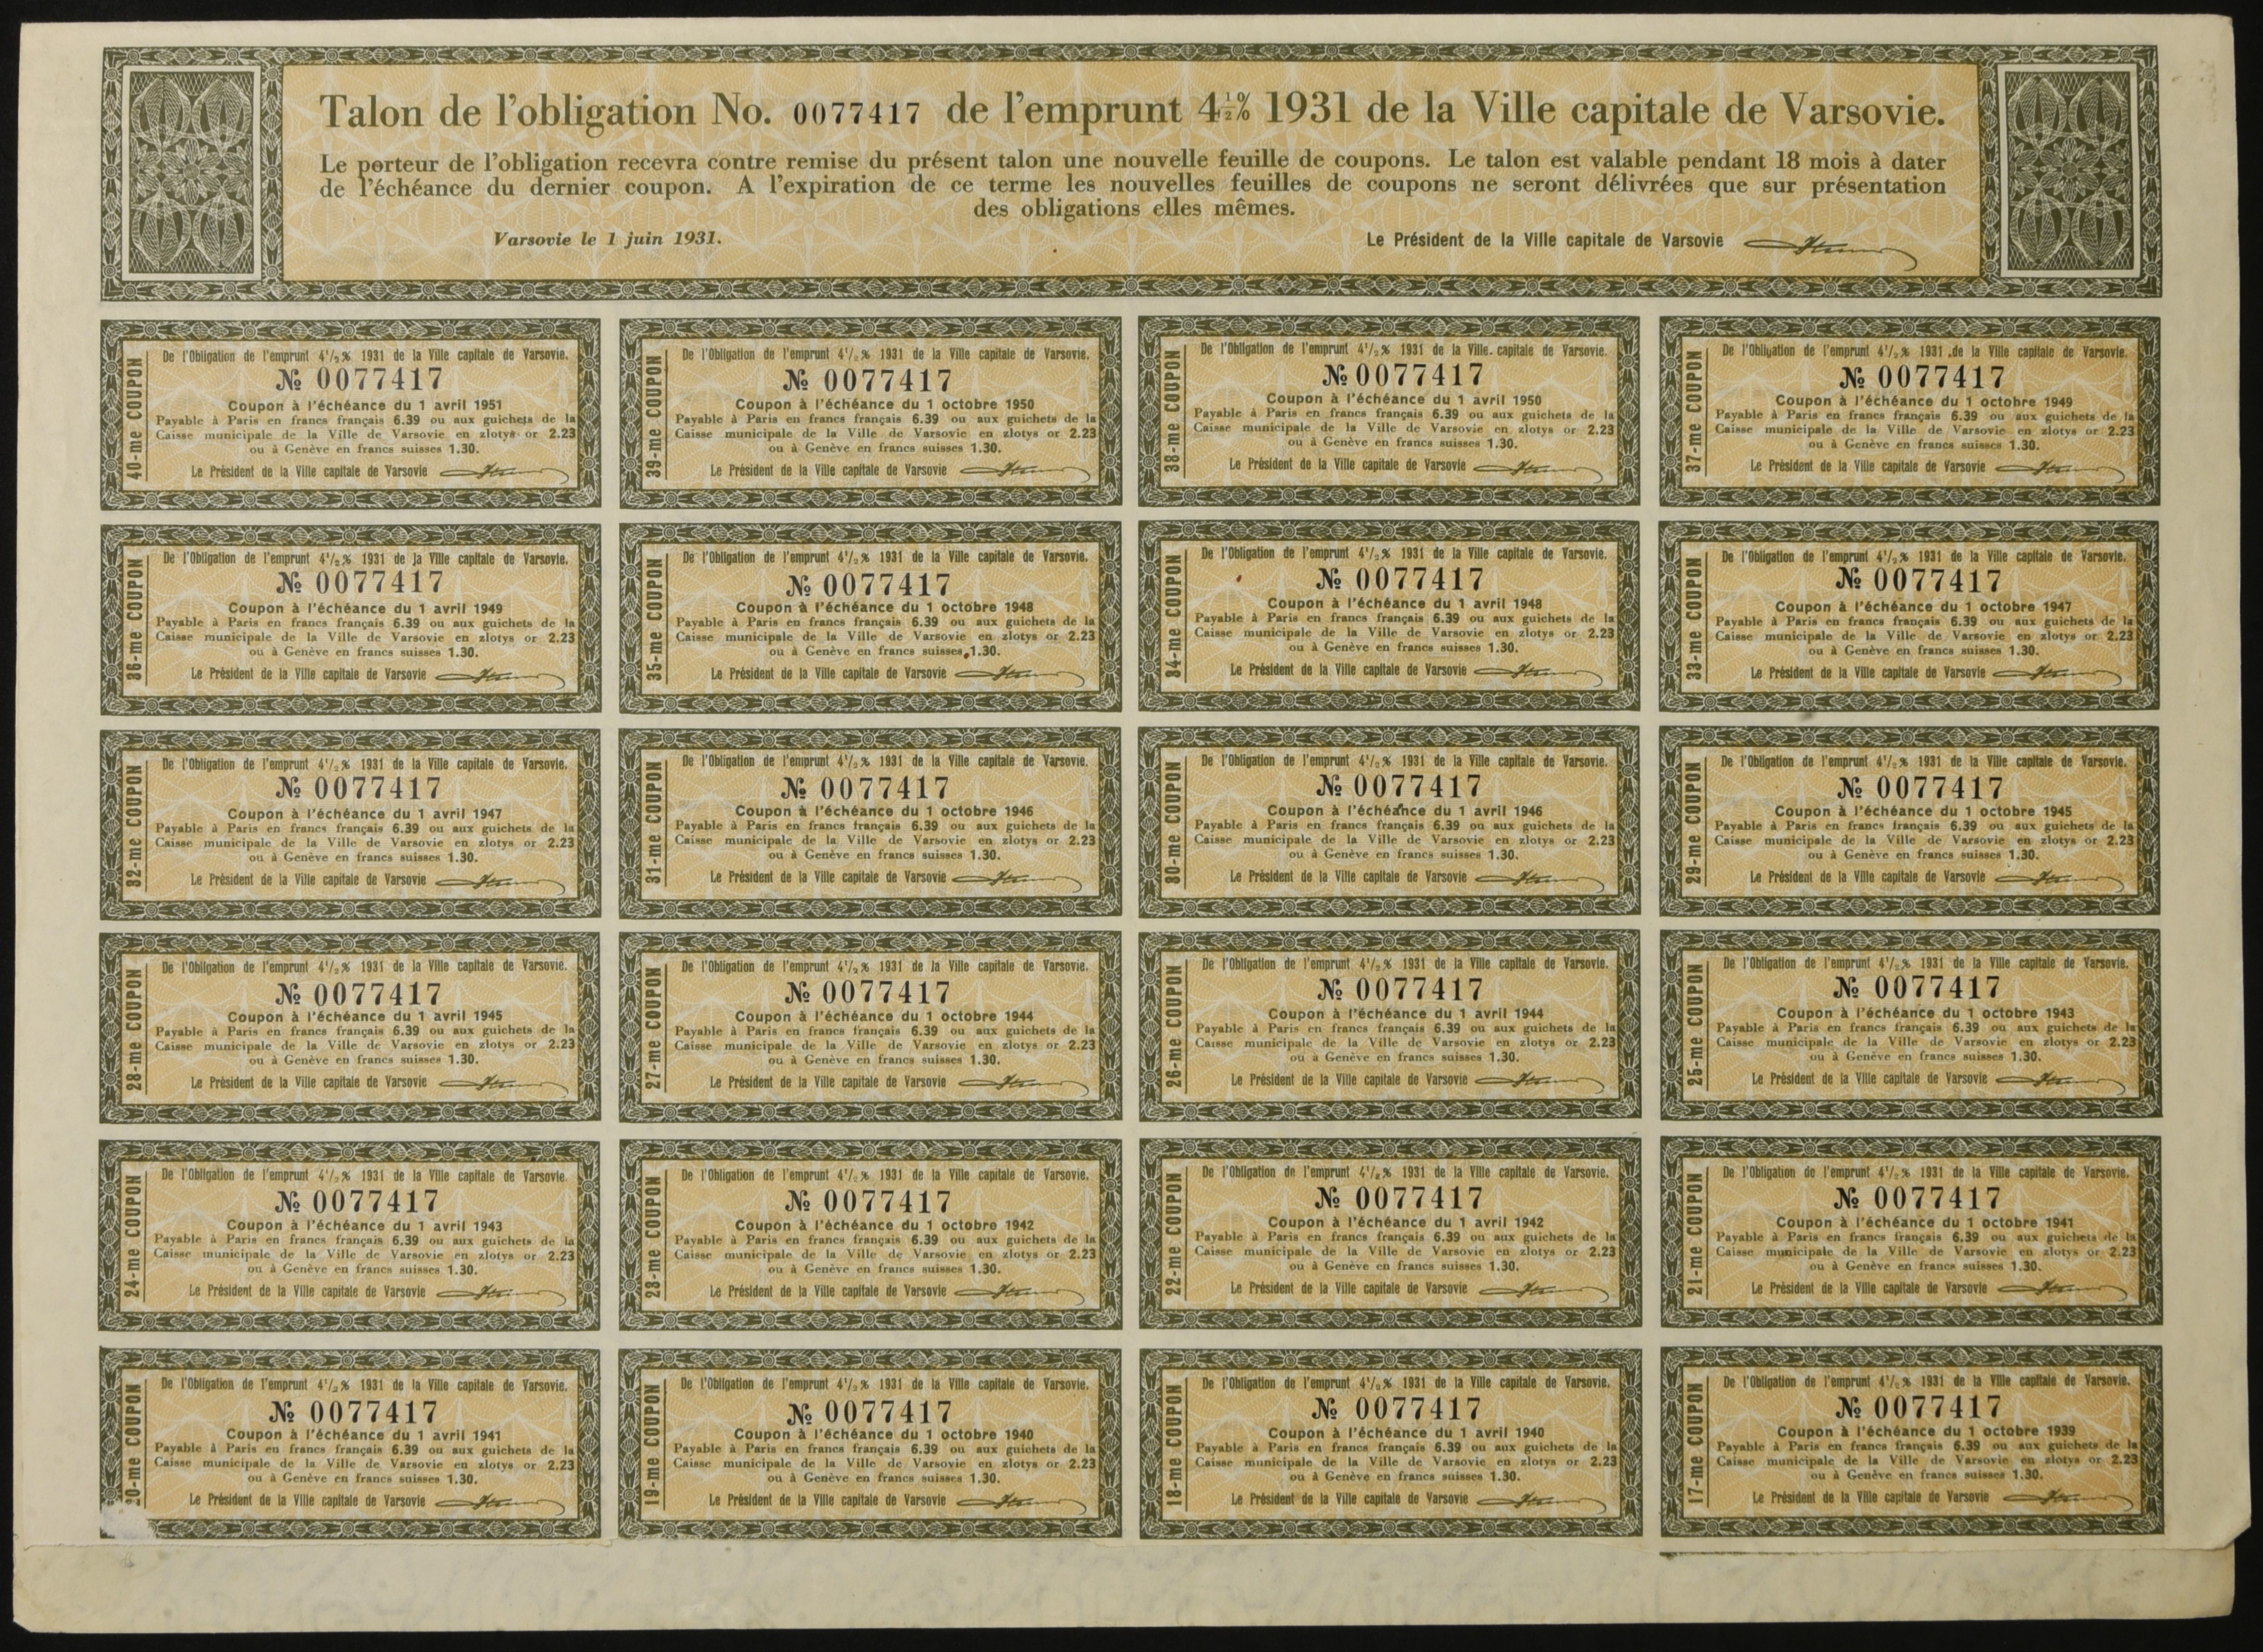 Talon de l'obligation No. 0077417 de l'emprunt 4½% 1931 de la Ville capitale de Varsovie.
Le porteur de l'obligation recevra contre remise du présent talon une nouvelle feuille de coupons. Le talon est valable pendant 18 mois à dater
de l'échéance du dernier coupon. A l'expiration de ce terme les nouvelles feuilles de coupons ne seront délivrées que sur présentation
des obligations elles mêmes.
Varsovie le 1 juin 1931.
Le Président de la Ville capitale de Varsovie
40-me COUPON
De l'Obligation de l'emprunt 4½% 1931 de la Ville capitale de Varsovie.
№ 0077417
Coupon à l'échéance du 1 avril 1951
Payable à Paris en francs français 6.39 ou aux guichets de la
Caisse municipale de la Ville de Varsovie en zlotys or 2.23
ou à Genève en francs suisses 1.30.
Le Président de la Ville capitale de Varsovie
39-me COUPON
De l'Obligation de l'emprunt 4½% 1931 de la Ville capitale de Varsovie.
№ 0077417
Coupon à l'échéance du 1 octobre 1950
Payable à Paris en francs français 6.39 ou aux guichets de la
Caisse municipale de la Ville de Varsovie en zlotys or 2.23
ou à Genève en francs suisses 1.30.
Le Président de la Ville capitale de Varsovie
38-me COUPON
De l'Obligation de l'emprunt 4½% 1931 de la Ville capitale de Varsovie.
№ 0077417
Coupon à l'échéance du 1 avril 1950
Payable à Paris en francs français 6.39 ou aux guichets de la
Caisse municipale de la Ville de Varsovie en zlotys or 2.23
ou à Genève en francs suisses 1.30.
Le Président de la Ville capitale de Varsovie
37-me COUPON
De l'Obligation de l'emprunt 4½% 1931 de la Ville capitale de Varsovie.
№ 0077417
Coupon à l'échéance du 1 octobre 1949
Payable à Paris en francs français 6.39 ou aux guichets de la
Caisse municipale de la Ville de Varsovie en zlotys or 2.23
ou à Genève en francs suisses 1.30.
Le Président de la Ville capitale de Varsovie
36-me COUPON
De l'Obligation de l'emprunt 4½% 1931 de la Ville capitale de Varsovie.
№ 0077417
Coupon à l'échéance du 1 avril 1949
Payable à Paris en francs français 6.39 ou aux guichets de la
Caisse municipale de la Ville de Varsovie en zlotys or 2.23
ou à Genève en francs suisses 1.30.
Le Président de la Ville capitale de Varsovie
35-me COUPON
De l'Obligation de l'emprunt 4½% 1931 de la Ville capitale de Varsovie.
№ 0077417
Coupon à l'échéance du 1 octobre 1948
Payable à Paris en francs français 6.39 ou aux guichets de la
Caisse municipale de la Ville de Varsovie en zlotys or 2.23
ou à Genève en francs suisses 1.30.
Le Président de la Ville capitale de Varsovie
34-me COUPON
De l'Obligation de l'emprunt 4½% 1931 de la Ville capitale de Varsovie.
№ 0077417
Coupon à l'échéance du 1 avril 1948
Payable à Paris en francs français 6.39 ou aux guichets de la
Caisse municipale de la Ville de Varsovie en zlotys or 2.23
ou à Genève en francs suisses 1.30.
Le Président de la Ville capitale de Varsovie
33-me COUPON
De l'Obligation de l'emprunt 4½% 1931 de la Ville capitale de Varsovie.
№ 0077417
Coupon à l'échéance du 1 octobre 1947
Payable à Paris en francs français 6.39 ou aux guichets de la
Caisse municipale de la Ville de Varsovie en zlotys or 2.23
ou à Genève en francs suisses 1.30.
Le Président de la Ville capitale de Varsovie
32-me COUPON
De l'Obligation de l'emprunt 4½% 1931 de la Ville capitale de Varsovie.
№ 0077417
Coupon à l'échéance du 1 avril 1947
Payable à Paris en francs français 6.39 ou aux guichets de la
Caisse municipale de la Ville de Varsovie en zlotys or 2.23
ou à Genève en francs suisses 1.30.
Le Président de la Ville capitale de Varsovie
31-me COUPON
De l'Obligation de l'emprunt 4½% 1931 de la Ville capitale de Varsovie.
№ 0077417
Coupon à l'échéance du 1 octobre 1946
Payable à Paris en francs français 6.39 ou aux guichets de la
Caisse municipale de la Ville de Varsovie en zlotys or 2.23
ou à Genève en francs suisses 1.30.
Le Président de la Ville capitale de Varsovie
30-me COUPON
De l'Obligation de l'emprunt 4½% 1931 de la Ville capitale de Varsovie.
№ 0077417
Coupon à l'échéance du 1 avril 1946
Payable à Paris en francs français 6.39 ou aux guichets de la
Caisse municipale de la Ville de Varsovie en zlotys or 2.23
ou à Genève en francs suisses 1.30.
Le Président de la Ville capitale de Varsovie
29-me COUPON
De l'Obligation de l'emprunt 4½% 1931 de la Ville capitale de Varsovie.
№ 0077417
Coupon à l'échéance du 1 octobre 1945
Payable à Paris en francs français 6.39 ou aux guichets de la
Caisse municipale de la Ville de Varsovie en zlotys or 2.23
ou à Genève en francs suisses 1.30.
Le Président de la Ville capitale de Varsovie
28-me COUPON
De l'Obligation de l'emprunt 4½% 1931 de la Ville capitale de Varsovie.
№ 0077417
Coupon à l'échéance du 1 avril 1945
Payable à Paris en francs français 6.39 ou aux guichets de la
Caisse municipale de la Ville de Varsovie en zlotys or 2.23
ou à Genève en francs suisses 1.30.
Le Président de la Ville capitale de Varsovie
27-me COUPON
De l'Obligation de l'emprunt 4½% 1931 de la Ville capitale de Varsovie.
№ 0077417
Coupon à l'échéance du 1 octobre 1944
Payable à Paris en francs français 6.39 ou aux guichets de la
Caisse municipale de la Ville de Varsovie en zlotys or 2.23
ou à Genève en francs suisses 1.30.
Le Président de la Ville capitale de Varsovie
26-me COUPON
De l'Obligation de l'emprunt 4½% 1931 de la Ville capitale de Varsovie.
№ 0077417
Coupon à l'échéance du 1 avril 1944
Payable à Paris en francs français 6.39 ou aux guichets de la
Caisse municipale de la Ville de Varsovie en zlotys or 2.23
ou à Genève en francs suisses 1.30.
Le Président de la Ville capitale de Varsovie
25-me COUPON
De l'Obligation de l'emprunt 4½% 1931 de la Ville capitale de Varsovie.
№ 0077417
Coupon à l'échéance du 1 octobre 1943
Payable à Paris en francs français 6.39 ou aux guichets de la
Caisse municipale de la Ville de Varsovie en zlotys or 2.23
ou à Genève en francs suisses 1.30.
Le Président de la Ville capitale de Varsovie
24-me COUPON
De l'Obligation de l'emprunt 4½% 1931 de la Ville capitale de Varsovie.
№ 0077417
Coupon à l'échéance du 1 avril 1943
Payable à Paris en francs français 6.39 ou aux guichets de la
Caisse municipale de la Ville de Varsovie en zlotys or 2.23
ou à Genève en francs suisses 1.30.
Le Président de la Ville capitale de Varsovie
23-me COUPON
De l'Obligation de l'emprunt 4½% 1931 de la Ville capitale de Varsovie.
№ 0077417
Coupon à l'échéance du 1 octobre 1942
Payable à Paris en francs français 6.39 ou aux guichets de la
Caisse municipale de la Ville de Varsovie en zlotys or 2.23
ou à Genève en francs suisses 1.30.
Le Président de la Ville capitale de Varsovie
22-me COUPON
De l'Obligation de l'emprunt 4½% 1931 de la Ville capitale de Varsovie.
№ 0077417
Coupon à l'échéance du 1 avril 1942
Payable à Paris en francs français 6.39 ou aux guichets de la
Caisse municipale de la Ville de Varsovie en zlotys or 2.23
ou à Genève en francs suisses 1.30.
Le Président de la Ville capitale de Varsovie
21-me COUPON
De l'Obligation de l'emprunt 4½% 1931 de la Ville capitale de Varsovie.
№ 0077417
Coupon à l'échéance du 1 octobre 1941
Payable à Paris en francs français 6.39 ou aux guichets de la
Caisse municipale de la Ville de Varsovie en zlotys or 2.23
ou à Genève en francs suisses 1.30.
Le Président de la Ville capitale de Varsovie
20-me COUPON
De l'Obligation de l'emprunt 4½% 1931 de la Ville capitale de Varsovie.
№ 0077417
Coupon à l'échéance du 1 avril 1941
Payable à Paris en francs français 6.39 ou aux guichets de la
Caisse municipale de la Ville de Varsovie en zlotys or 2.23
ou à Genève en francs suisses 1.30.
Le Président de la Ville capitale de Varsovie
19-me COUPON
De l'Obligation de l'emprunt 4½% 1931 de la Ville capitale de Varsovie.
№ 0077417
Coupon à l'échéance du 1 octobre 1940
Payable à Paris en francs français 6.39 ou aux guichets de la
Caisse municipale de la Ville de Varsovie en zlotys or 2.23
ou à Genève en francs suisses 1.30.
Le Président de la Ville capitale de Varsovie
18-me COUPON
De l'Obligation de l'emprunt 4½% 1931 de la Ville capitale de Varsovie.
№ 0077417
Coupon à l'échéance du 1 avril 1940
Payable à Paris en francs français 6.39 ou aux guichets de la
Caisse municipale de la Ville de Varsovie en zlotys or 2.23
ou à Genève en francs suisses 1.30.
Le Président de la Ville capitale de Varsovie
17-me COUPON
De l'Obligation de l'emprunt 4½% 1931 de la Ville capitale de Varsovie.
№ 0077417
Coupon à l'échéance du 1 octobre 1939
Payable à Paris en francs français 6.39 ou aux guichets de la
Caisse municipale de la Ville de Varsovie en zlotys or 2.23
ou à Genève en francs suisses 1.30.
Le Président de la Ville capitale de Varsovie